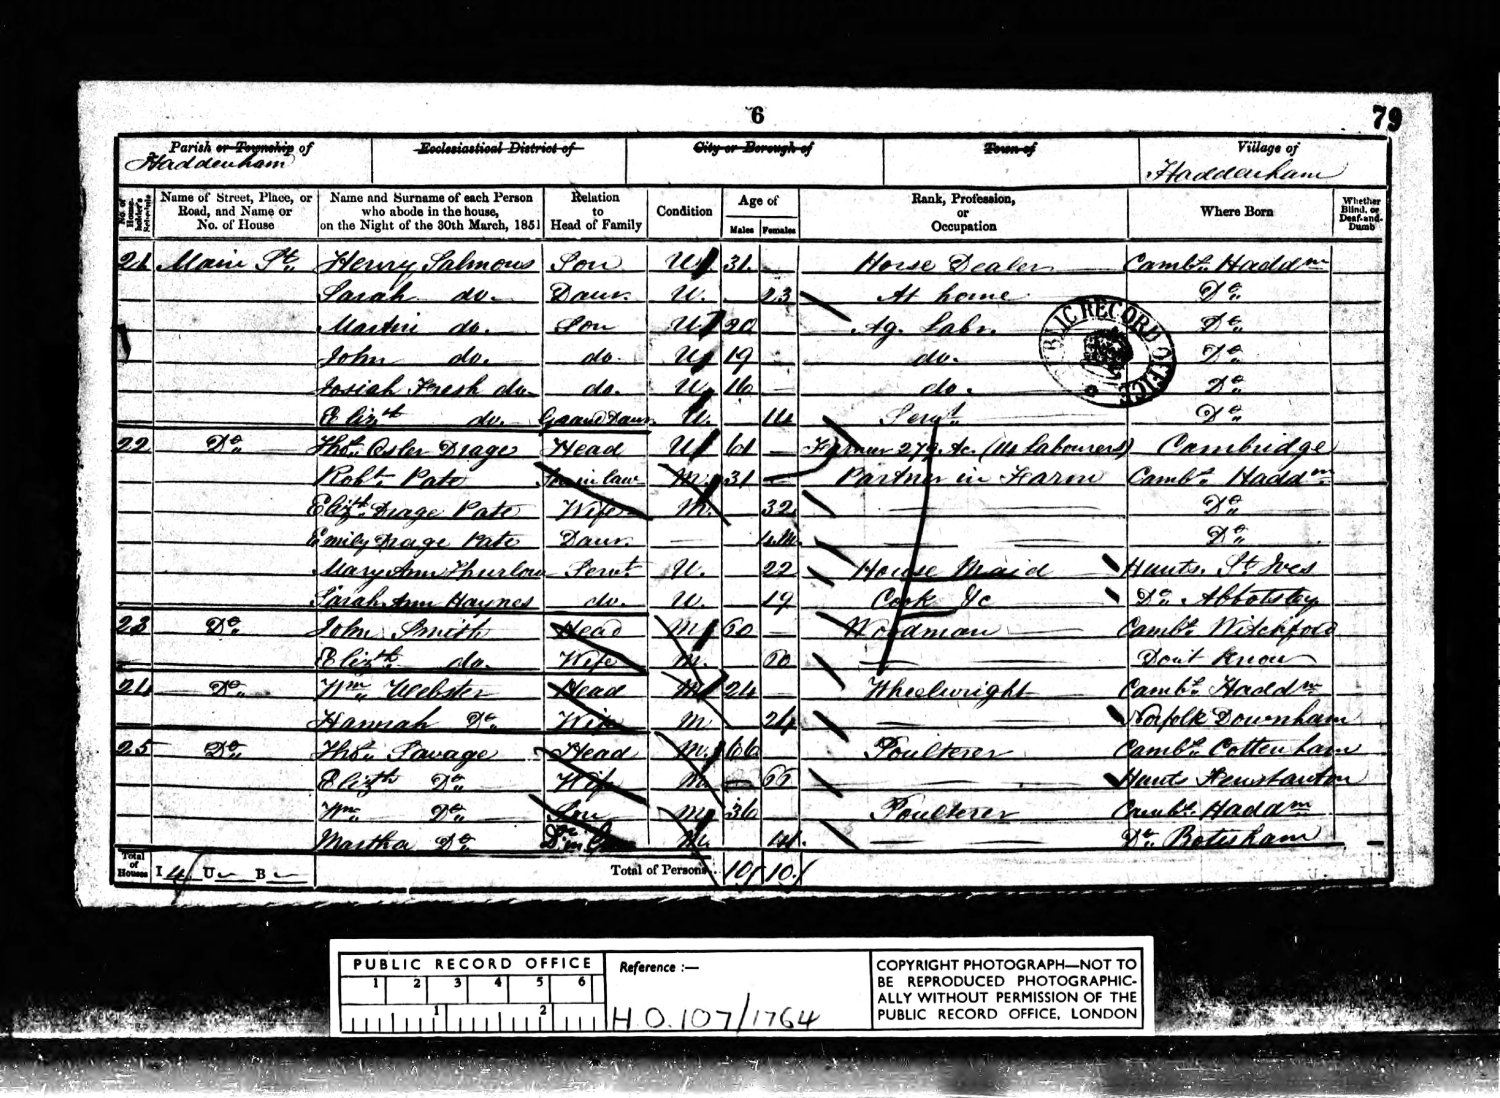 6
79
Parish or Township of
Haddenham
Ecclesiastical District of
City or Borough of
Town of
Village of
Haddenham
No. of House-holder's Schedule
Name of Street, Place, or Road, and Name or No. of House
Name and Surname of each Person who abode in the house, on the Night of the 30th March, 1851
Relation to Head of Family
Condition
Age of
Males Females
Rank, Profession, or Occupation
Where Born
Whether Blind, or Deaf-and-Dumb
21 Main St. Henry Salmons Son U 31 Horse Dealer Cambs. Haddm
Sarah do. Daur. U. 23 At home Do
Martin do. Son U 20 Ag. Labr. Do
John do. do. U 19 do. Do
Josiah Fresh do. do. U. 16 do. Do
Elizth do. Grand Daur. U. 14 Servt. Do
22 Do Thos. Osler Drage Head U 61 Farmer 279 Ac. Labourers) Cambridge
Robt. Pate Son in law M. 31 Partner in Farm Cambs. Haddm
Elizth. Drage Pate Wife M. 32 Do
Emily Drage Pate Daur. Do
Mary Ann Thurlow Servt. U. 22 House Maid Hunts. St. Ives
Sarah Ann Haynes do. U. 19 Cook &c Do. Abbotsley
23 Do John Smith Head M 60 Woodman Cambs. Witchford
Elizth. do. Wife M. 60 Don't Know
24 Do Wm Webster Head M 24 Wheelwright Cambs. Haddm
Hannah Do Wife M 24 Norfolk Downham
25 Do Thos. Savage Head M. 66 Poulterer Cambs. Cottenham
Elizth Do Wife M 66 Hunts
Wm Do Son M 36 Poulterer Cambs. Haddm
Martha Do M. 41. Do Botisham
Total of Houses I 4 U B Total of Persons 10 10
PUBLIC RECORD OFFICE
PUBLIC RECORD OFFICE
1 2 3 4 5 6
1 2
Reference :—
H.O. 107/1764
COPYRIGHT PHOTOGRAPH—NOT TO
BE REPRODUCED PHOTOGRAPHIC-
ALLY WITHOUT PERMISSION OF THE
PUBLIC RECORD OFFICE, LONDON